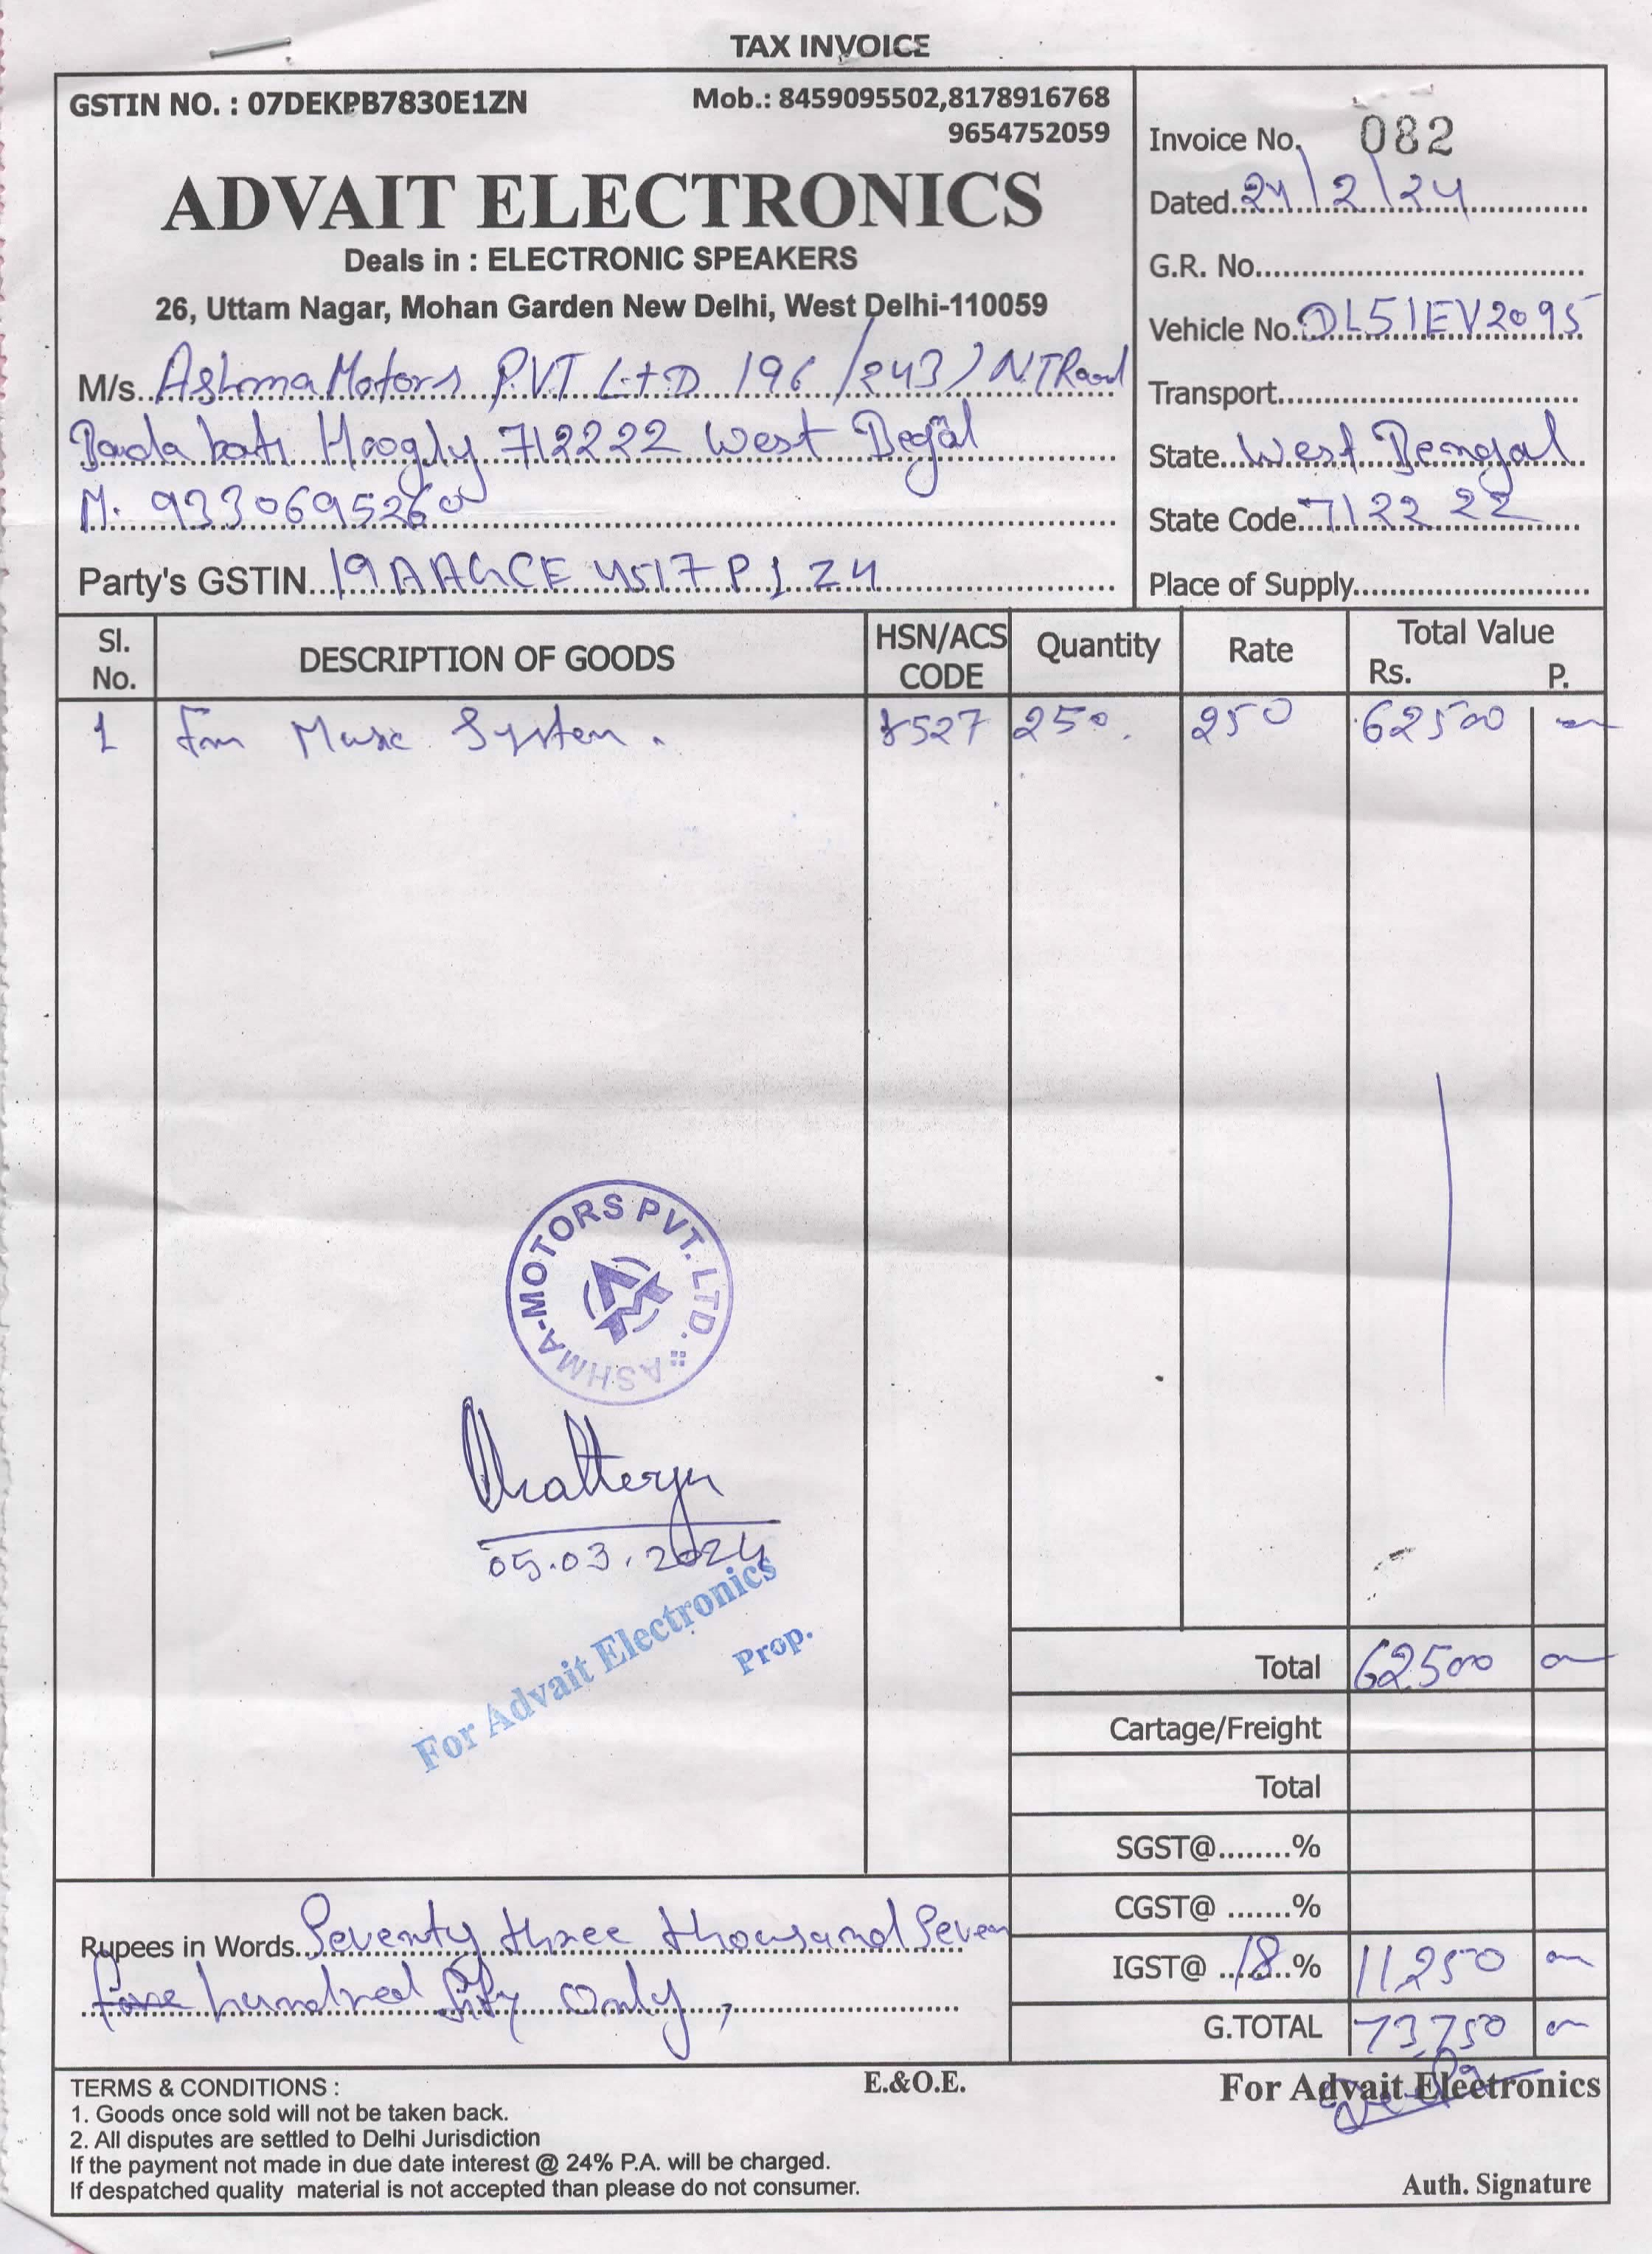 TAX INVOICE
GSTIN NO. : 07DEKPB7830E1ZN
Mob.: 8459095502,8178916768
9654752059
ADVAIT ELECTRONICS
Deals in : ELECTRONIC SPEAKERS
26, Uttam Nagar, Mohan Garden New Delhi, West Delhi-110059
M/s. Ashma Motors PVT LTD 196/243/NTRoad
Hoogly 712222 West
M. 9330695260
Party's GSTIN 19AAGCE4517P1Z4
Invoice No. 082
Dated 24/2/24
G.R. No.
Vehicle No. DL51EV2095
Transport
State West Bengal
State Code 712222
Place of Supply
Sl. No. DESCRIPTION OF GOODS HSN/ACS CODE Quantity Rate Total Value Rs. P.
1 Fm Music System. 8527 250. 250 62500
ASHMA-MOTORS PVT. LTD.
05.03.2024
For Advait Electronics
Prop.
Total 62500
Cartage/Freight
Total
SGST@........%
CGST@ .......%
IGST@ 18% 11250
G.TOTAL 73,750
Rupees in Words Seventy three thousand Seven
hundred fifty Only,
TERMS & CONDITIONS :
1. Goods once sold will not be taken back.
2. All disputes are settled to Delhi Jurisdiction
If the payment not made in due date interest @ 24% P.A. will be charged.
If despatched quality material is not accepted than please do not consumer.
E.&O.E.
For Advait Electronics
Auth. Signature